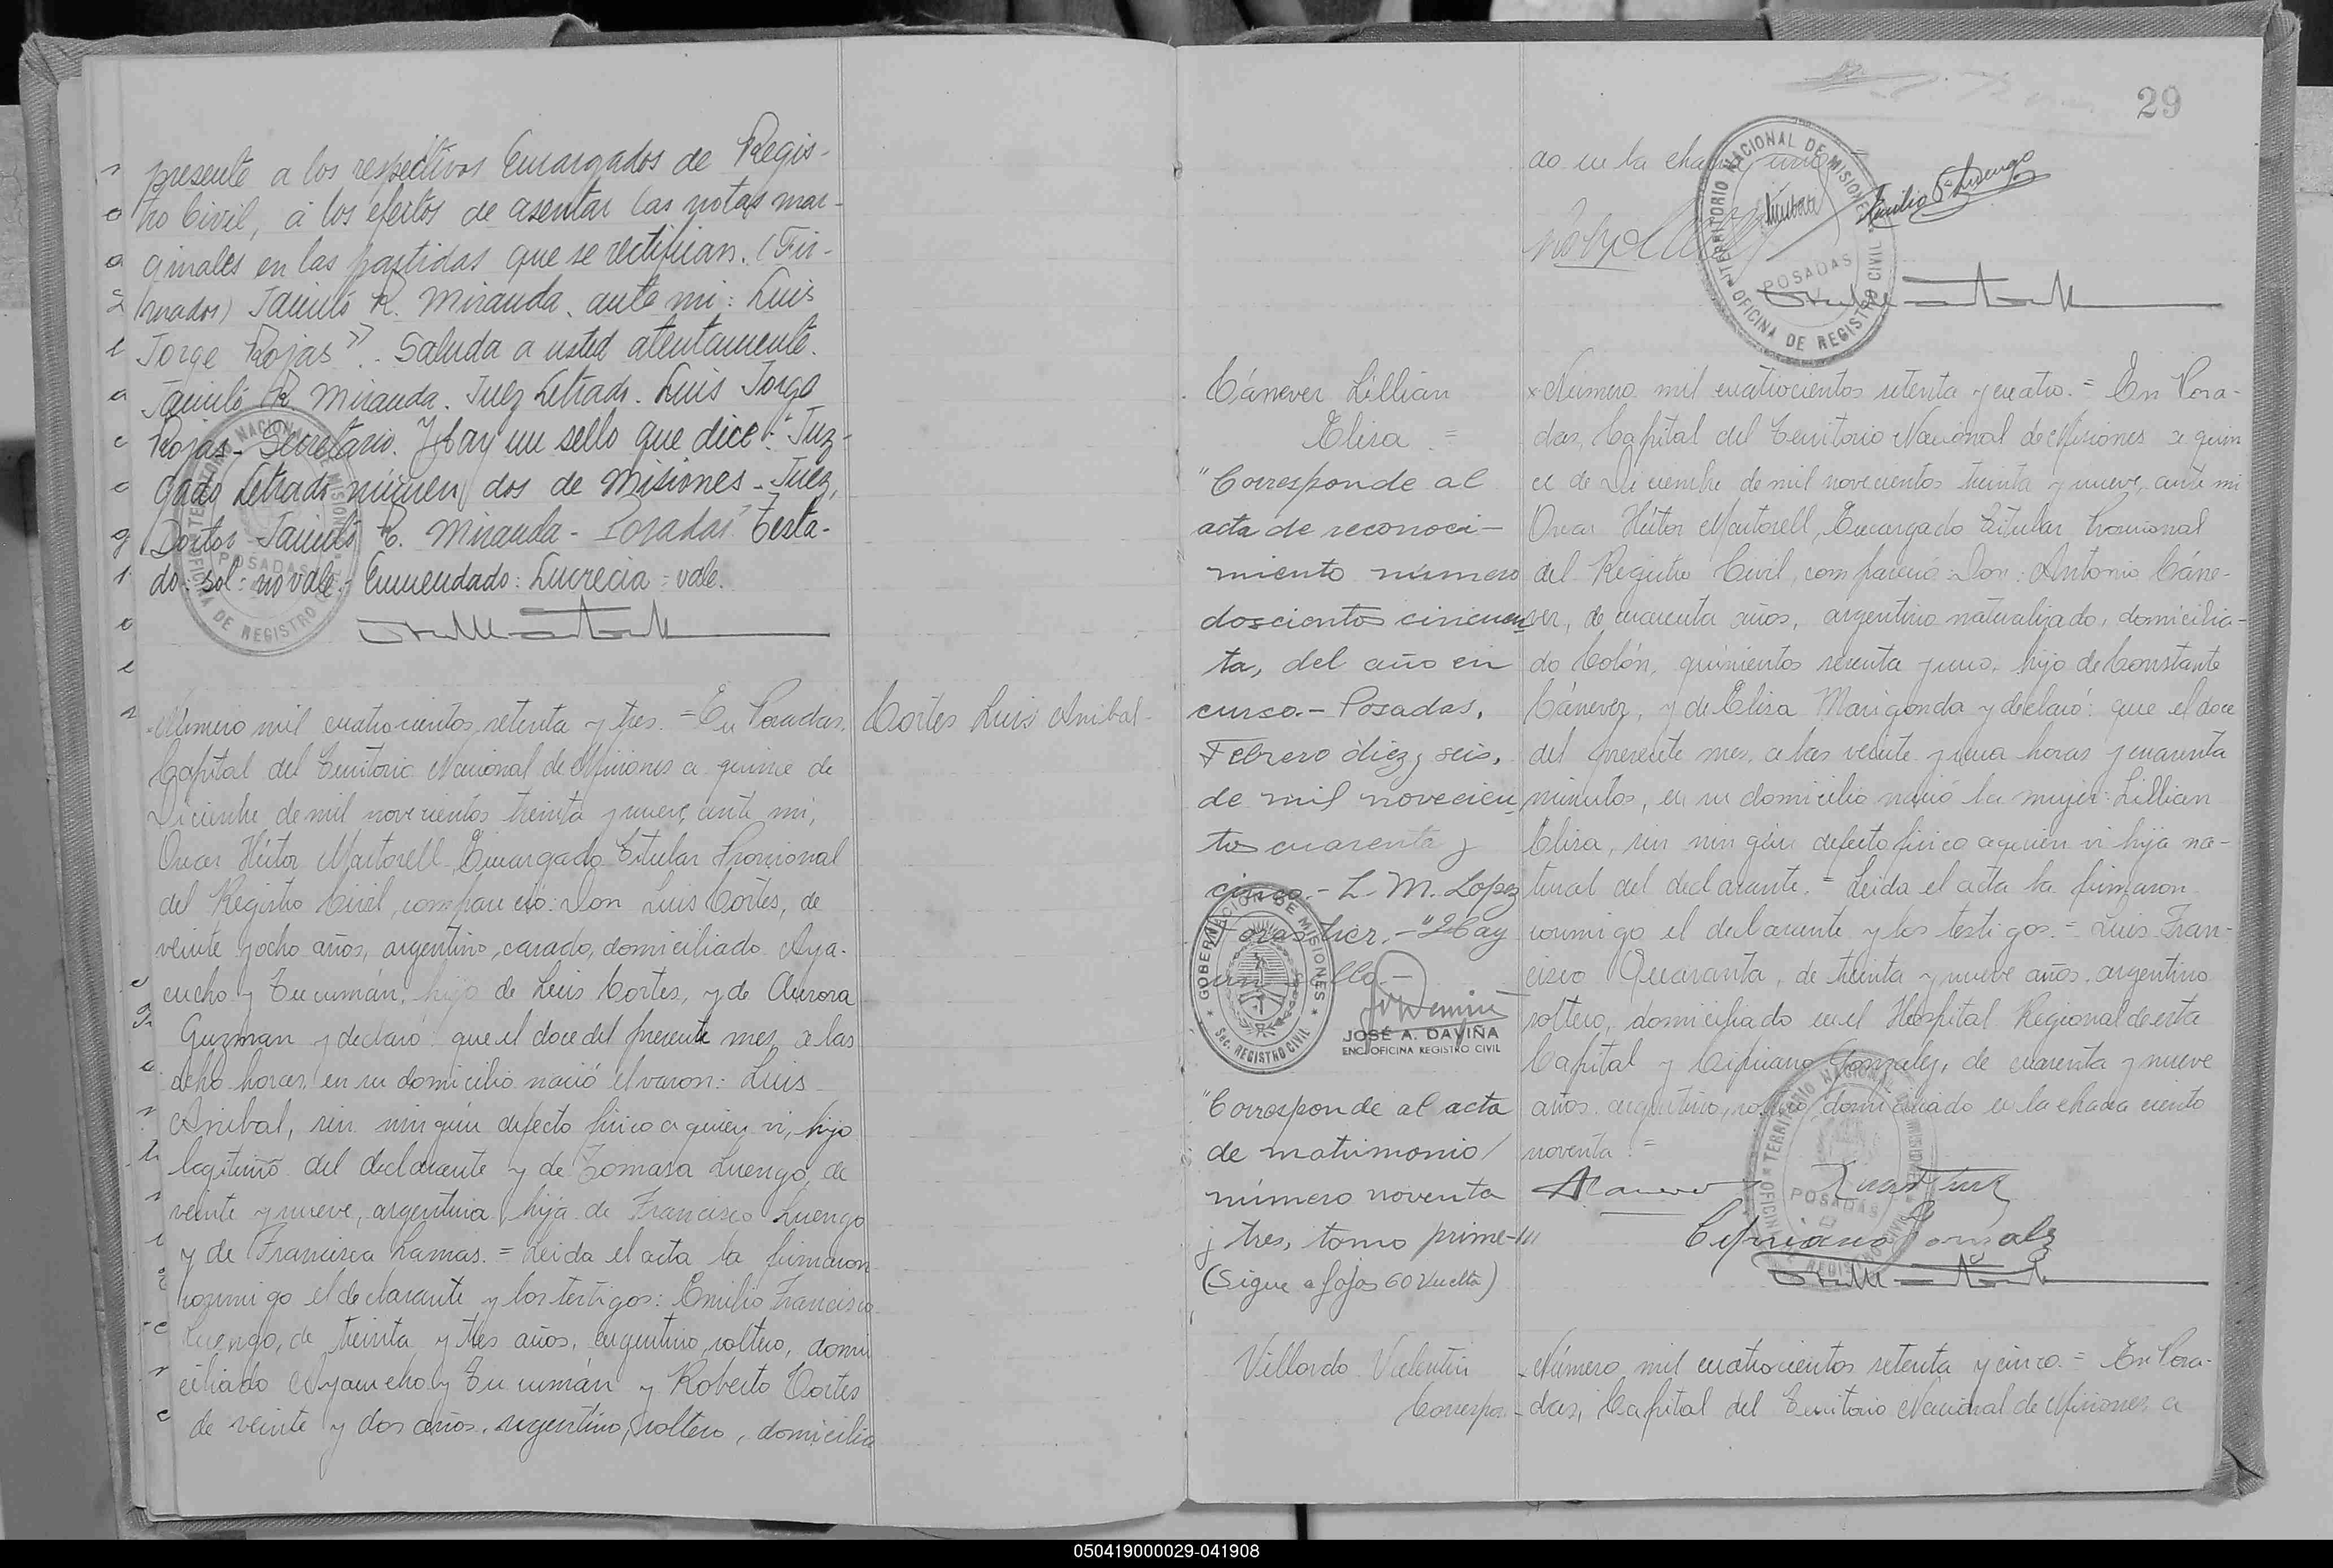 presente a los respectivos Encargados de Regis-
tro Civil, á los efectos de asentar las notas mar-
ginales en las partidas que se rectifican. (Fir-
mados) Jacinto R. Miranda. ante mi: Luis
Jorge Rojas". Saluda a usted atentamente.
Jacinto R. Miranda. Juez Letrado. Luis Jorge
Rojas - Secretario. Hay un sello que dice: "Juz-
gado Letrado número dos de Misiones - Juez,
Doctor Jacinto R. Miranda - Posadas" Testa-
do: sol: no vale. Enmendado: Lucrecia = vale.
TERRITORIO NACIONAL DE MISIONES
POSADAS
OFICINA DE REGISTRO CIVIL
Cortes Luis Anibal-
Número mil cuatrocientos setenta y tres. = En Posadas,
Capital del Territorio Nacional de Misiones a quince de
Diciembre de mil novecientos treinta y nueve, ante mi,
Oscar Héctor Martorell, Encargado Titular Provisional
del Registro Civil, compareció: Don Luis Cortés, de
veinte y ocho años, argentino, casado, domiciliado Aya-
cucho y Tucumán, hijo de Luis Cortes, y de Aurora
Guzman y declaró: que el doce del presente mes, a las
ocho horas, en su domicilio nació el varon: Luis
Anibal, sin ningún defecto fisico a quien vi, hijo
legitimo del declarante y de Tomasa Luengo, de
veinte y nueve, argentina, hija de Francisco Luengo
y de Francisca Lamas. = Leida el acta la firmaron
conmigo el declarante y los testigos: Emilio Francisco
Luengo, de treinta y tres años, argentino, soltero, domi
ciliado Ayacucho y Tucumán y Roberto Cortes
de veinte y dos años, argentino, soltero, domicilia
29
do en la chacra uno =
Emilio F. Luengo
TERRITORIO NACIONAL DE MISIONES
POSADAS
OFICINA DE REGISTRO CIVIL
Cánever Lillian
Elisa =
"Corresponde al
acta de reconoci-
miento número
doscientos cincuen
ta, del año en
curso.- Posadas,
Febrero diez y seis,
de mil novecien
tos cuarenta y
cinco.- L. M. Lopez
Forastier.-"Hay
un sello.-
GOBERNACION DE MISIONES
Sec. REGISTRO CIVIL
JOSÉ A. DAVIÑA
ENC. OFICINA REGISTRO CIVIL
"Corresponde al acta
de matrimonio
número noventa
y tres, tomo prime-
(Sigue a fojas 60 vuelta)
Número mil cuatrocientos setenta y cuatro. = En Posa-
das, Capital del Territorio Nacional de Misiones a quin
ce de Diciembre de mil novecientos treinta y nueve, ante mi
Oscar Héctor Martorell, Encargado Titular Provisional
del Registro Civil, compareció: Don: Antonio Cáne-
ver, de cuarenta años, argentino naturalizado, domicilia-
do Colón, quinientos sesenta y uno, hijo de Constante
Cánever, y de Elisa Marigonda y declaró: que el doce
del presente mes, a las veinte y una horas y cuarenta
minutos, en su domicilio nació la mujer: Lillian
Elisa, sin ningún defecto fisico a quien vi hija na-
tural del declarante. = Leida el acta la firmaron
conmigo el declarante y los testigos. = Luis Fran-
cisco Quaranta, de treinta y nueve años, argentino
soltero, domiciliado en el Hospital Regional de esta
Capital y Cipriano Gonzalez, de cuarenta y nueve
años, argentino, soltero, domiciliado en la chacra ciento
noventa. =
Cipriano Gonsalez
TERRITORIO NACIONAL DE MISIONES
POSADAS
OFICINA DE REGISTRO CIVIL
Villordo Valentin
Correspon-
Número mil cuatrocientos setenta y cinco. = En Posa-
das, Capital del Territorio Nacional de Misiones, a
050419000029-041908